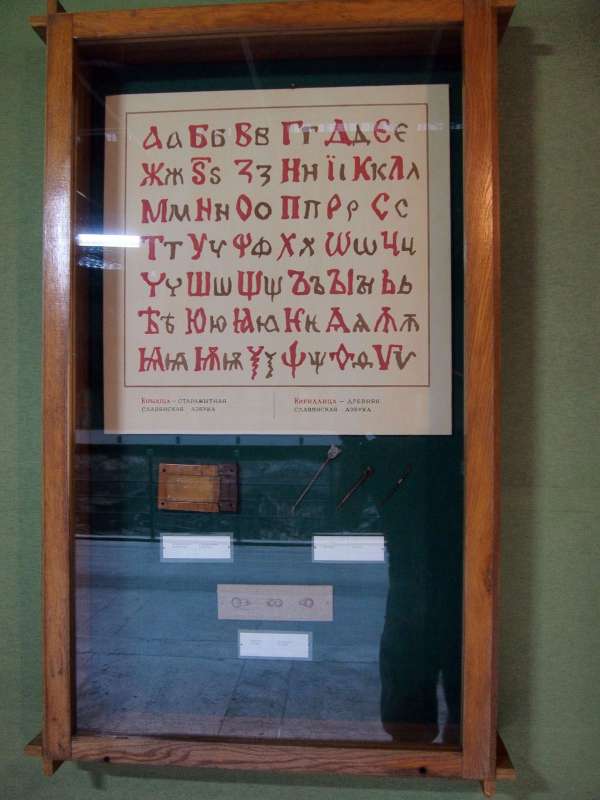 Аа Бб Вв Гг Дд Єє
Жж Ѕѕ Зз Нн Її Кк Лл
Мм Нн Оо Пп Рр Сс
Тт Уу Фф Хх Ѡѡ Цц
Чч Шш Щщ Ъъ Ыы Ьь
Ѣѣ Юю Ꙗꙗ Ѥѥ Ѧѧ Ѫѫ
Ѩѩ Ѭѭ Ѯѯ Ѱѱ Ѳѳ Ѵѵ
Кірыліца – старажытная
славянская азбука
Кириллица – древняя
славянская азбука